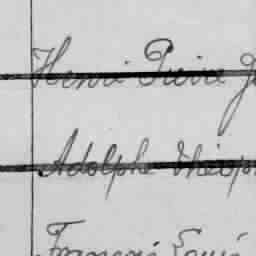 Henri Pierre J
Adolphe Théoph
François Louis